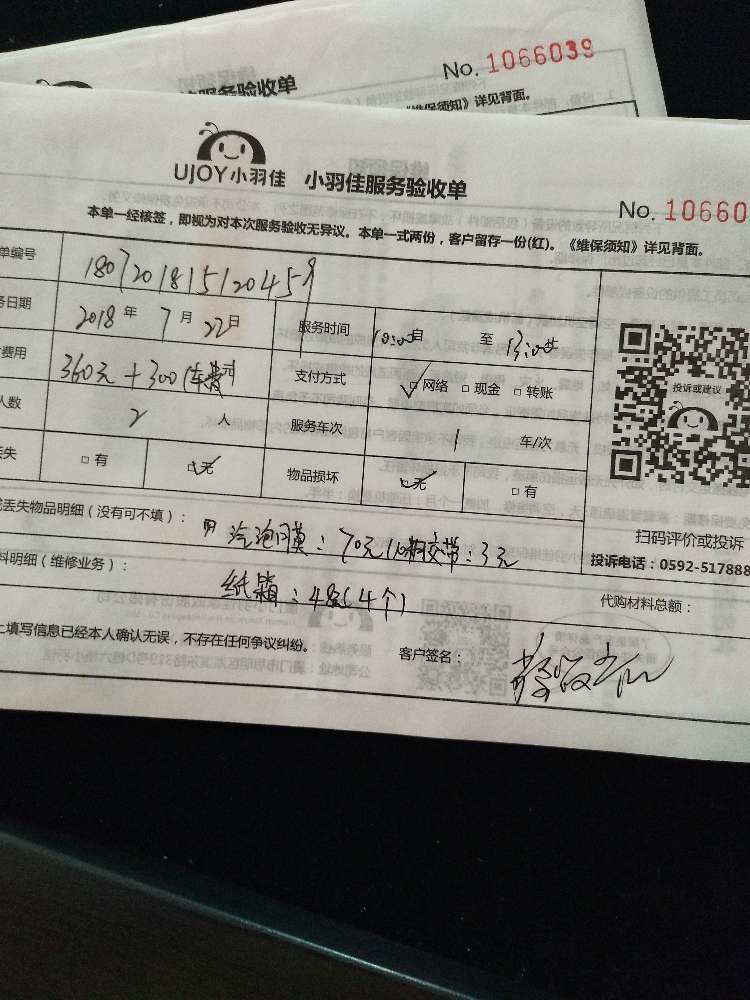 No. 1066039
服务验收单
《维保须知》详见背面。
UJOY小羽佳 小羽佳服务验收单
No. 10660
本单一经核签，即视为对本次服务验收无异议。本单一式两份，客户留存一份(红)。《维保须知》详见背面。
单编号 180720181512045
务日期 2018 年 7 月 22 日 服务时间 10:00 自 至 13:00
费用 360元 + 300(车费 支付方式 网络 现金 转账
人数 2 人 服务车次 1 车/次
丢失 有 无 物品损坏 无 有
丢失物品明细（没有可不填）： 汽泡膜：70元 胶带：3元
料明细（维修业务）： 纸箱：48(4个) 代购材料总额：
上填写信息已经本人确认无误，不存在任何争议纠纷。 客户签名：
投诉或建议
扫码评价或投诉
投诉电话：0592-517888